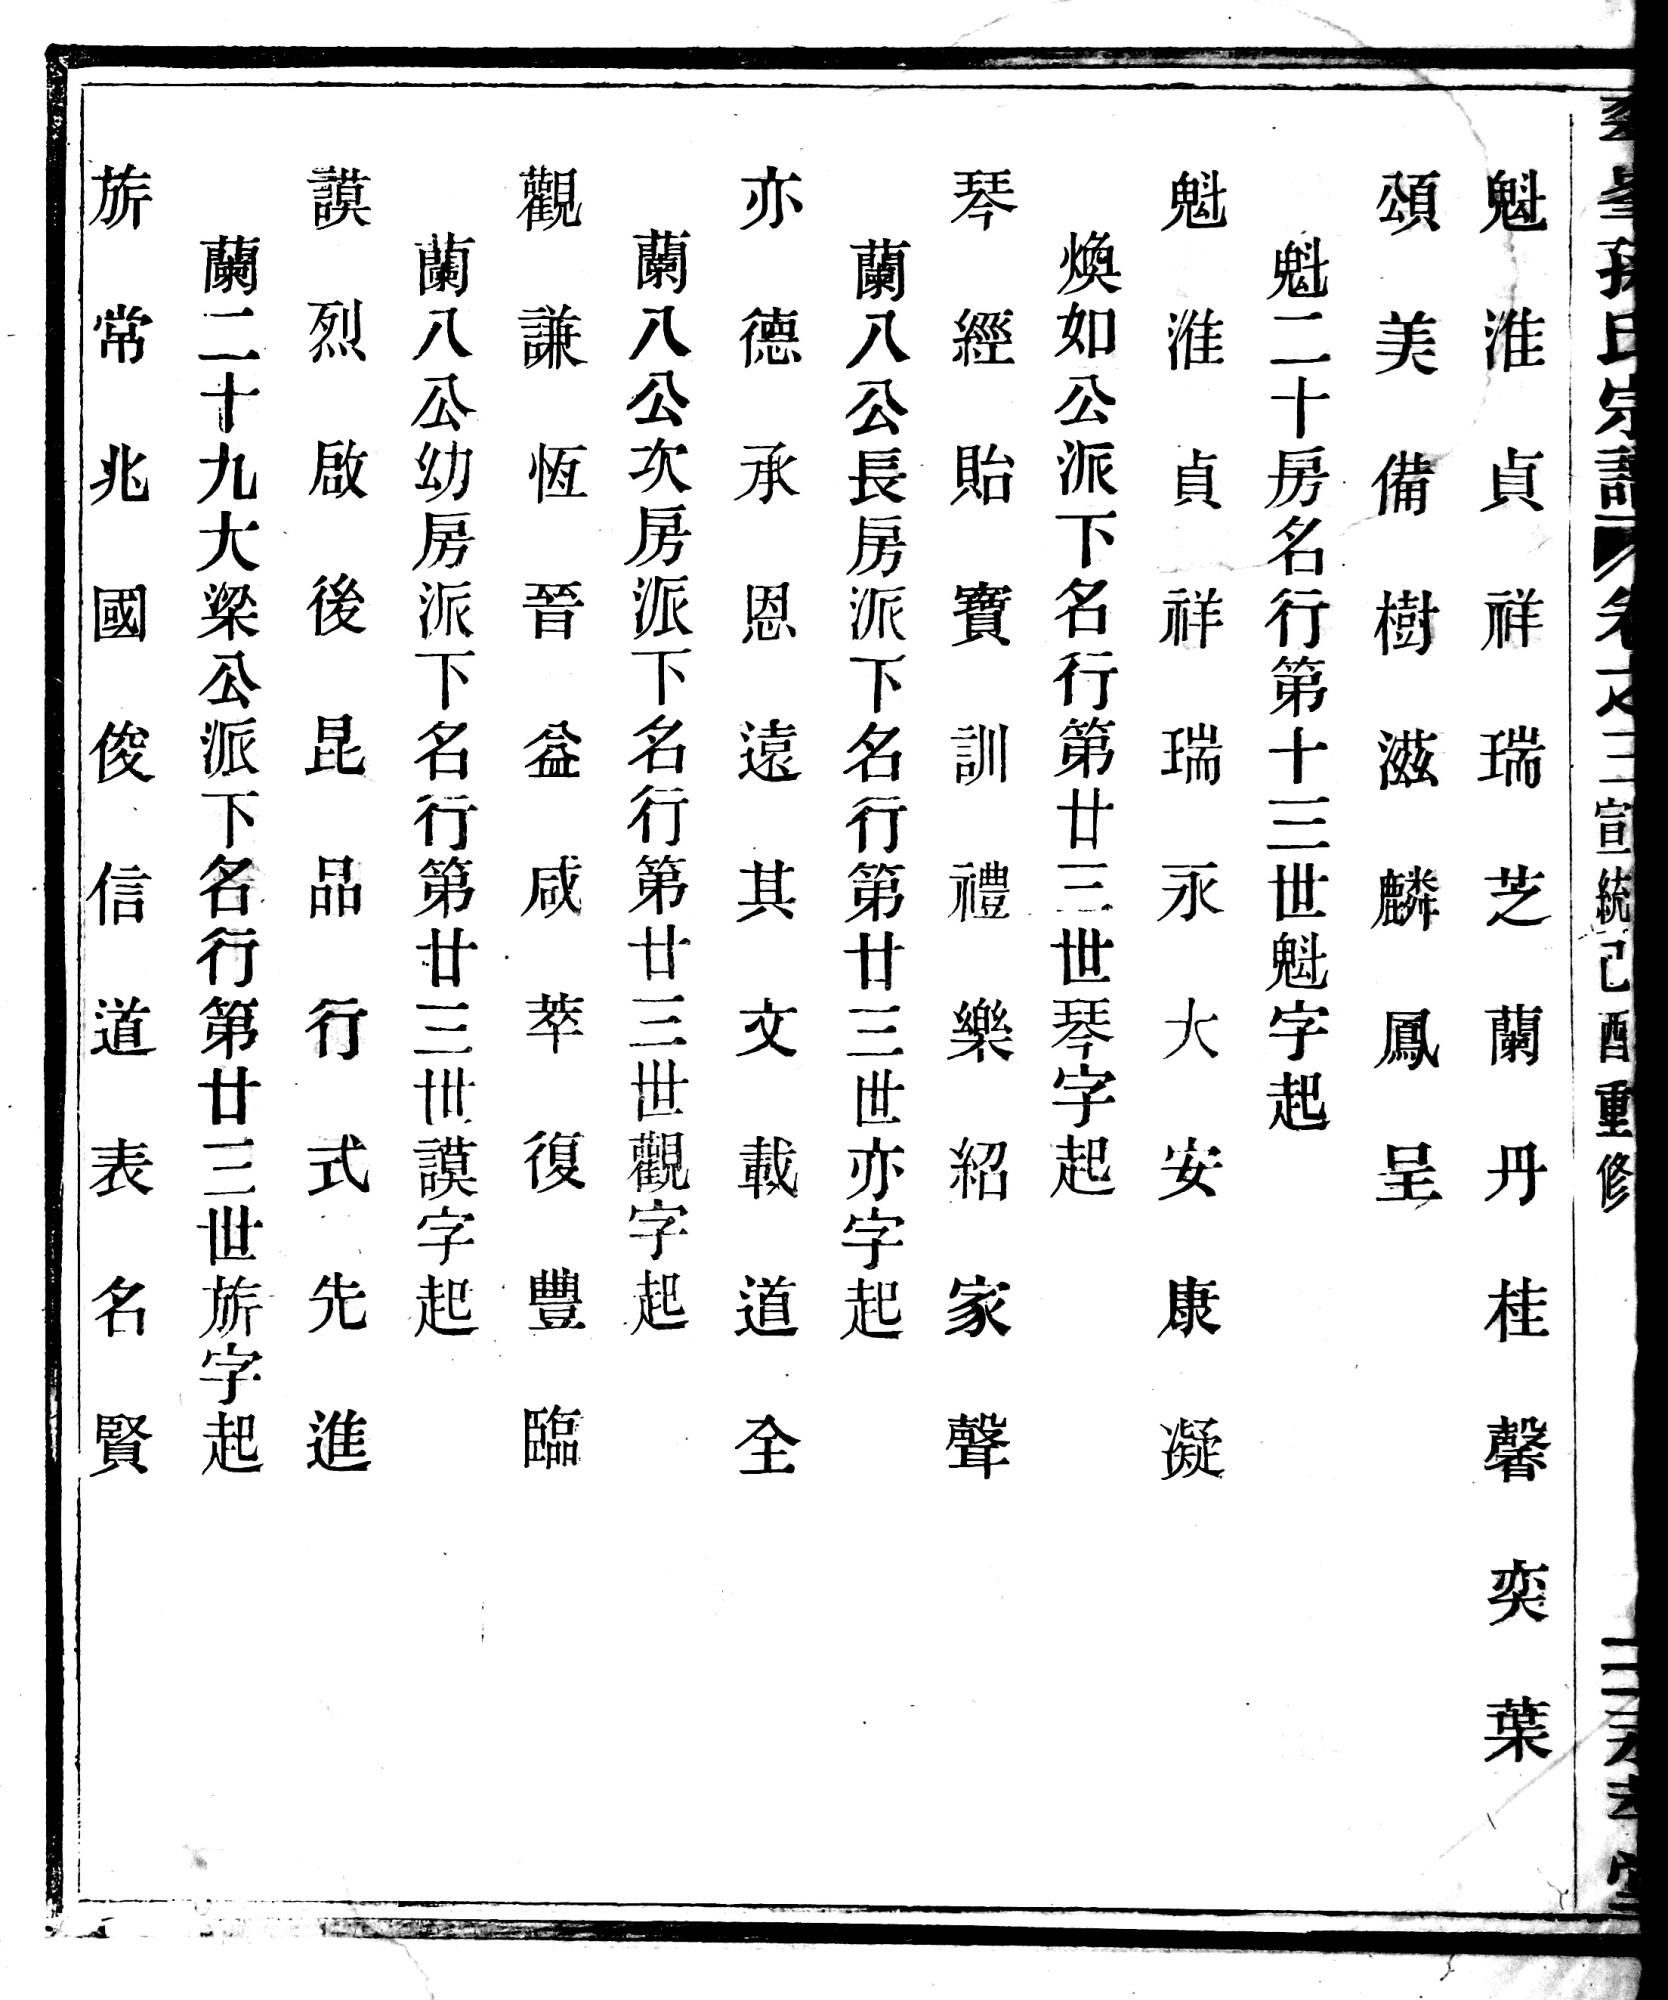 孫氏宗譜 卷之三 宣統己酉重修
魁淮貞祥瑞芝蘭丹桂馨奕葉
頌美備樹滋麟鳳呈
魁二十房名行第十三世魁字起
魁淮貞祥瑞永大安康凝
煥如公派下名行第廿三世琴字起
琴經貽訓寶禮樂紹家聲
蘭八公長房派下名行第廿三世亦字起
亦德承恩遠其文載道全
蘭八公次房派下名行第廿三世觀字起
觀謙恆晉益咸萃復豐臨
蘭八公幼房派下名行第廿三世謨字起
謨烈啟後昆品行式先進
蘭二十九大梁公派下名行第廿三世旂字起
旂常兆國俊信道表名賢